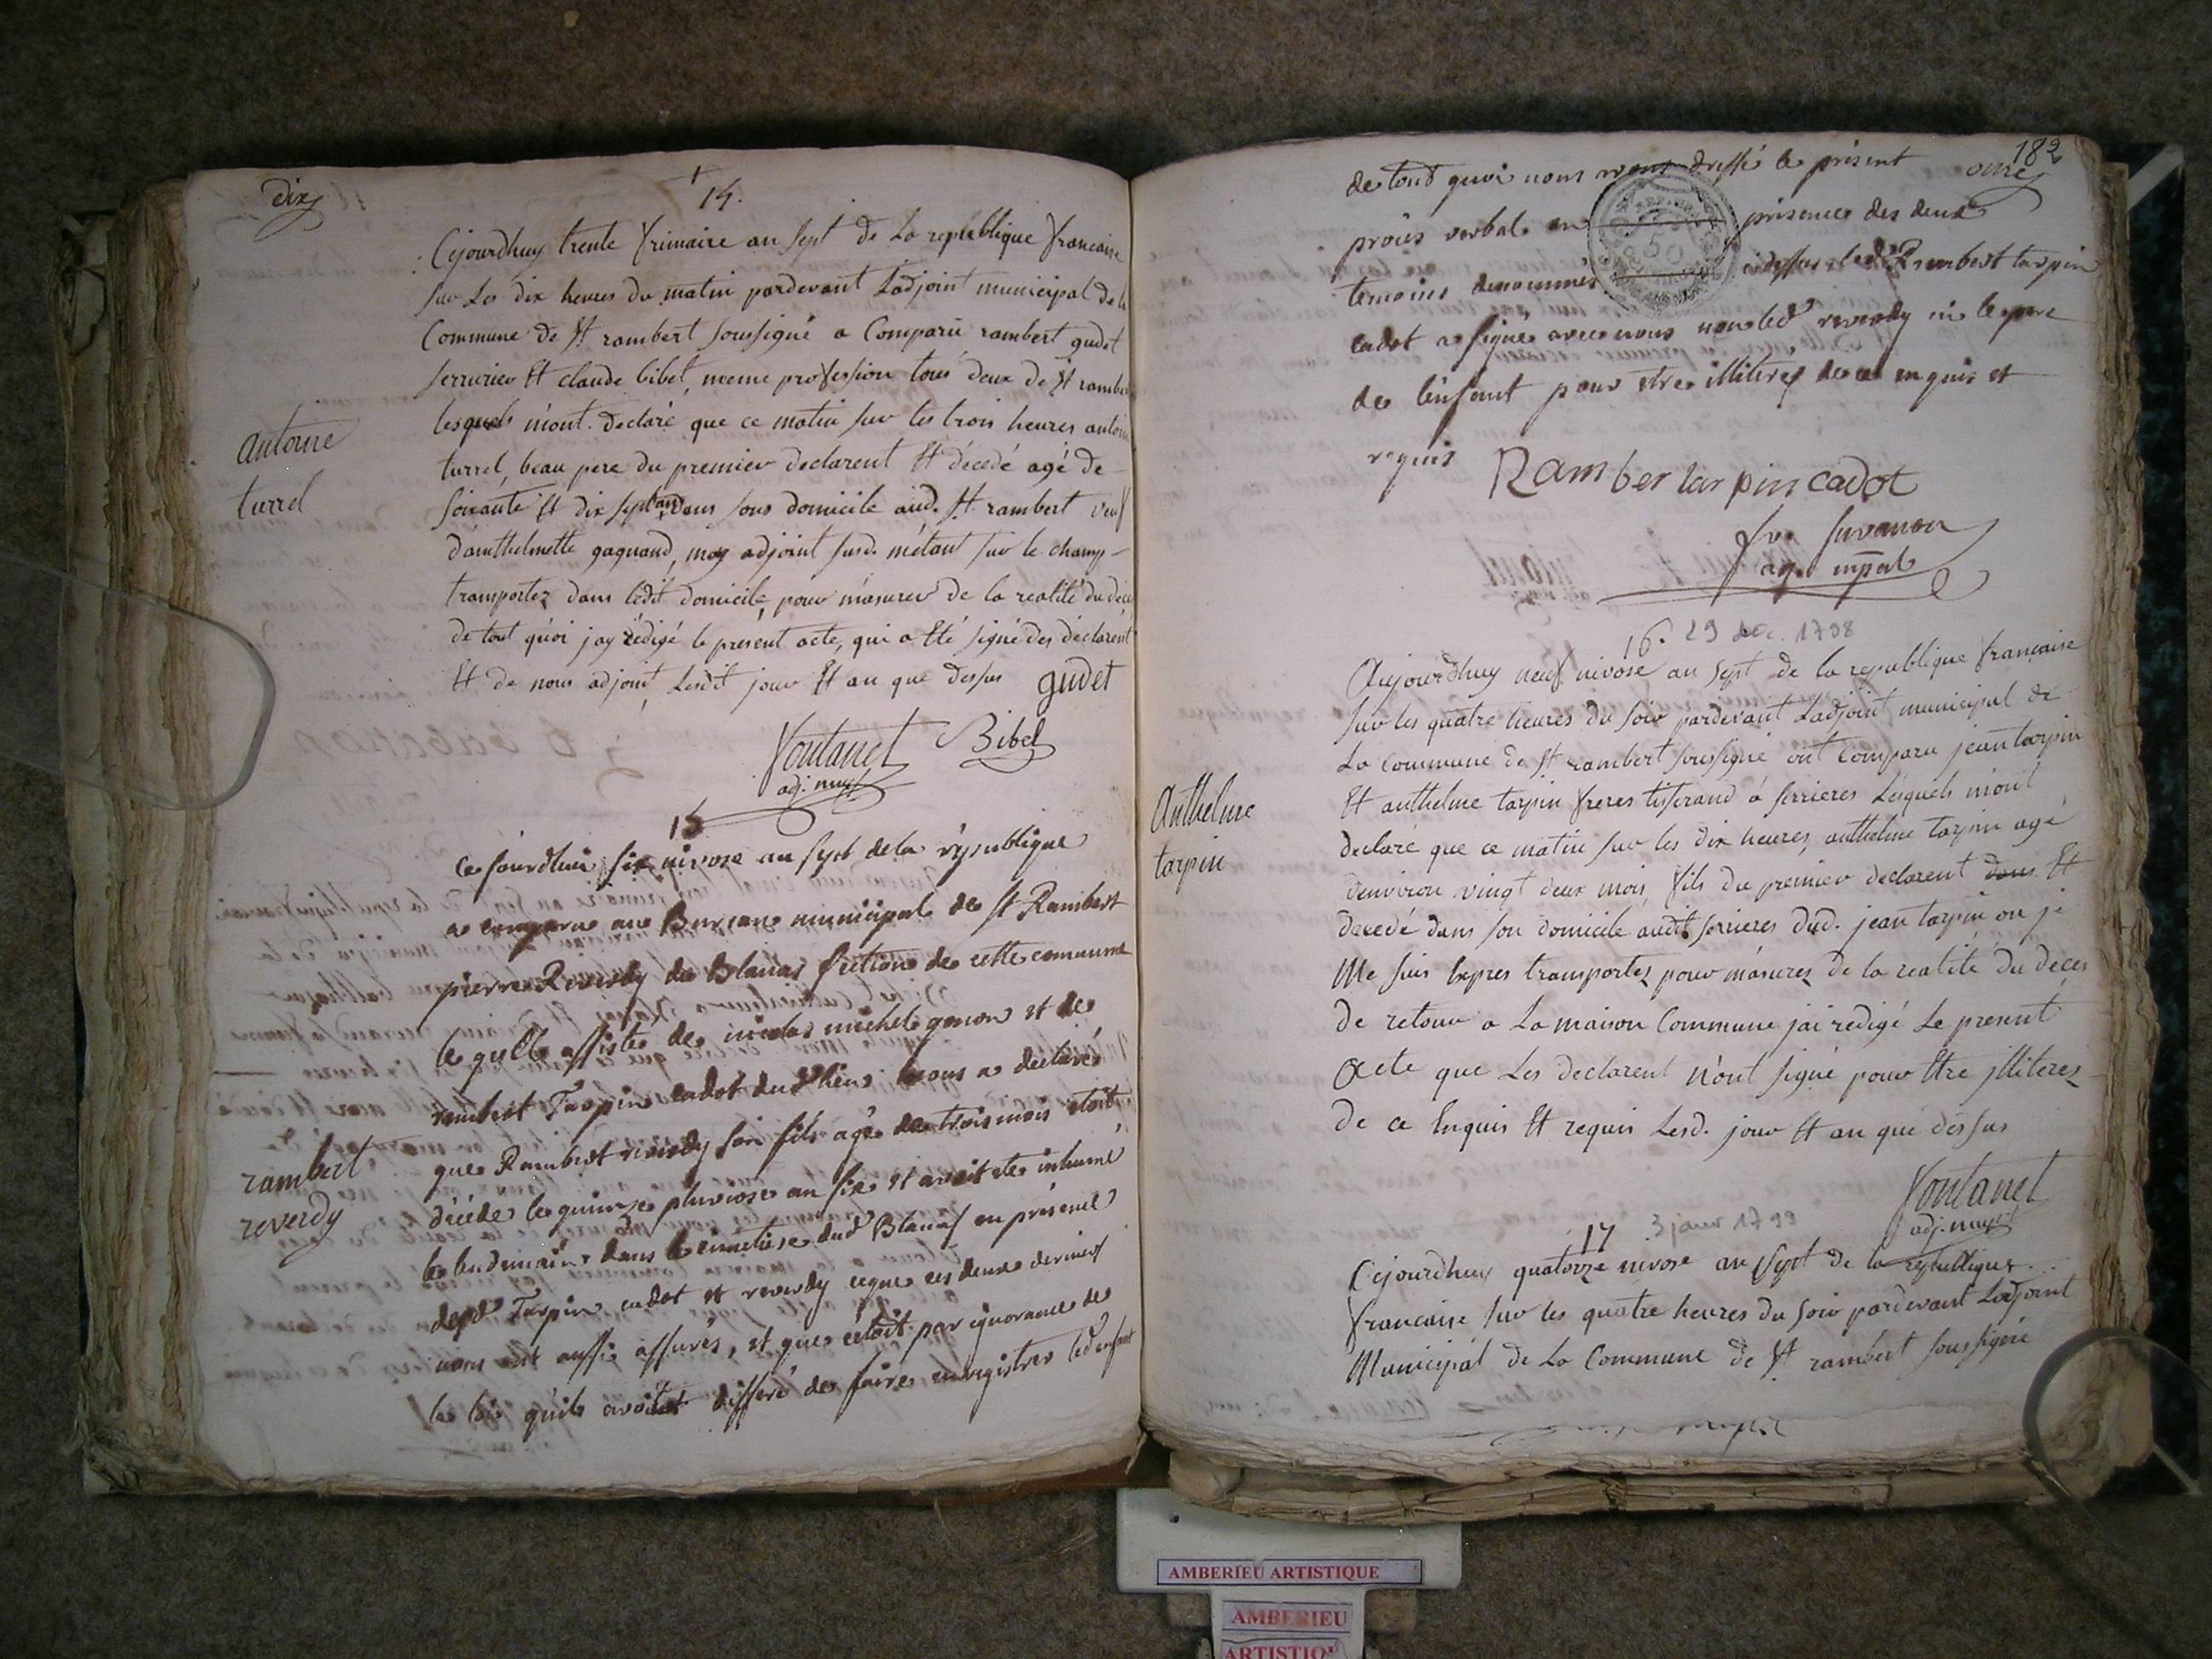 dix
14.
Cejourdhuy trente frimaire an sept de La republique francaise
sur Les dix heures du matin pardevant Ladjoint municipal de la
Commune de St rambert soussigné a Comparu rambert gudet
serrurier Et claude bibet, meme profession tous deux de St rambert
lesquels m'ont declaré que ce matin sur les trois heures antoine
turrel, beau pere du premier declarent Et décedé agé de
soixante Et dix sept ans dans sous domicile aud. St rambert veuf
d'amthelmette gagnand, moy adjoint susd. m'étant sur le champ
transportez dans ledit domicile, pour m'asurer de la realité du déces
de tout quoi jay rédigé le present acte, qui a Eté signé des déclarent
Et de nous adjoint Lesdit jour Et an que dessus gudet
antoine
turrel
fontanel Bibel
adj. mupl
15
Ce jourdhui six nivose an sept de la république
a comparu au Bureau municipal de St Rambert
pierre Reverdy de Blanas section de cette commune
le quelle assisté de nicolas michel genon et de
rembert Tarpin cadot dud lieu nous a declaré
que Rambert reverdy son fils agé de trois mois etoit
décéde le quinze pluviose an six et avoit ete inhumé
le lendemain dans le cimetiere dud Blanas en présence
desd Tarpin cadot et reverdy ceque ces deux derniers
nous ont aussi assurés, et que cetoit par ignorance de
la loi quils avoient differé de faire enregistrer led enfant
rambert
reverdy
182
onze
de tout quoi nous avons dressé le présent
procès verbal en présence des deux
temoins denommes cidessus led Rembert tarpin
cadot a signé avec nous non led reverdy ni le pere
de l'enfant pour etre illitirés de ce enquis et
requis
Ramber tarpin cadot
ag. mpal
16. 29 déc. 1798
Aujourdhuy neuf nivose an sept de la republique française
sur les quatre heures du soir pardevant Ladjoint municipal de
La Commune de St rambert soussigné ont Comparu jean tarpin
Et anthelme tarpin freres tisserand a serrieres Lesquels m'ont
declaré que ce matin sur les dix heures, anthelme tarpin agé
denviron vingt deux mois, fils du premier declarent dans Et
decedé dans son domicile audit serrieres dud. jean tarpin ou je
Me suis Expres transportez pour m'asurez de la realité du déces
de retour a La maison Commune jai redigé Le present
acte que Les declarent n'ont signé pour Etre illiterez
de ce Enquis Et requis Lesd. jour Et an que dessus
Anthelme
tarpin
fontanel
adj. mupl
17 3 janv 1799
Cejourdhuy quatorze nivose an sept de la republique
francaise sur les quatre heures du soir pardevant Ladjoint
Municipal de La Commune de St rambert soussigné
AMBERIEU ARTISTIQUE
AMBERIEU
ARTISTIQU